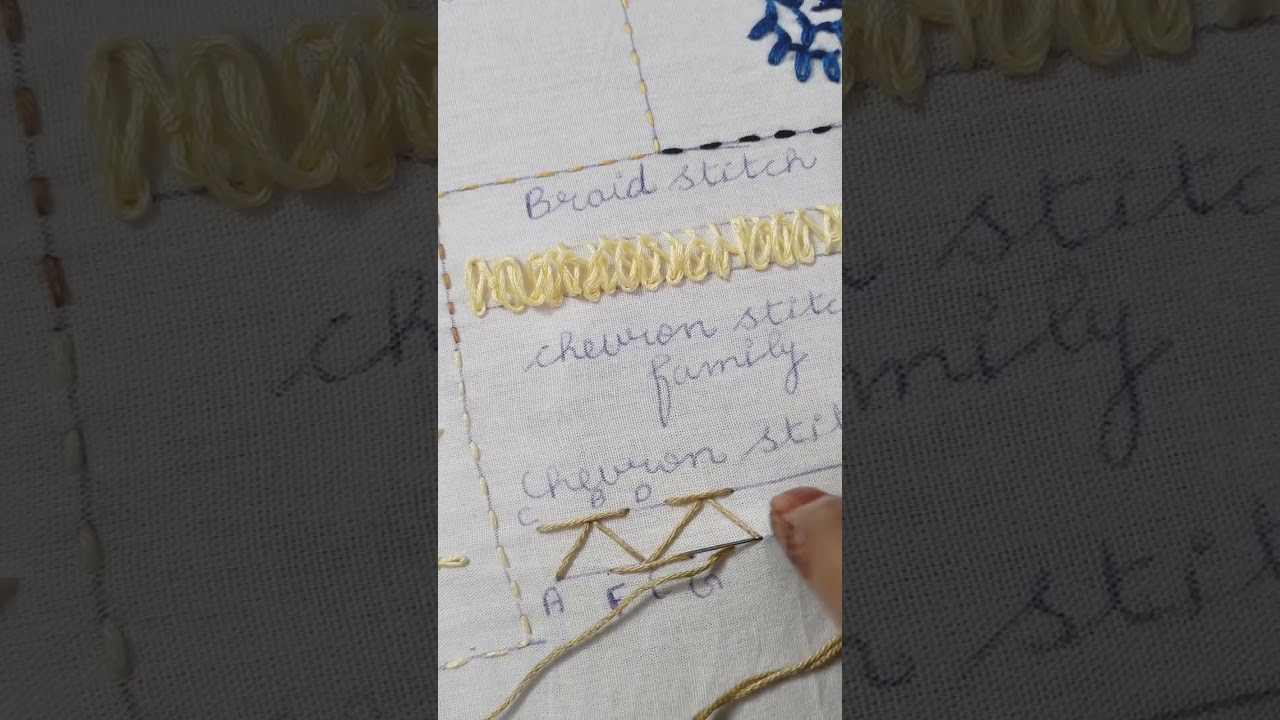 Braid stitch
chevron stitc
family
Chevron stit
C B D
A F G